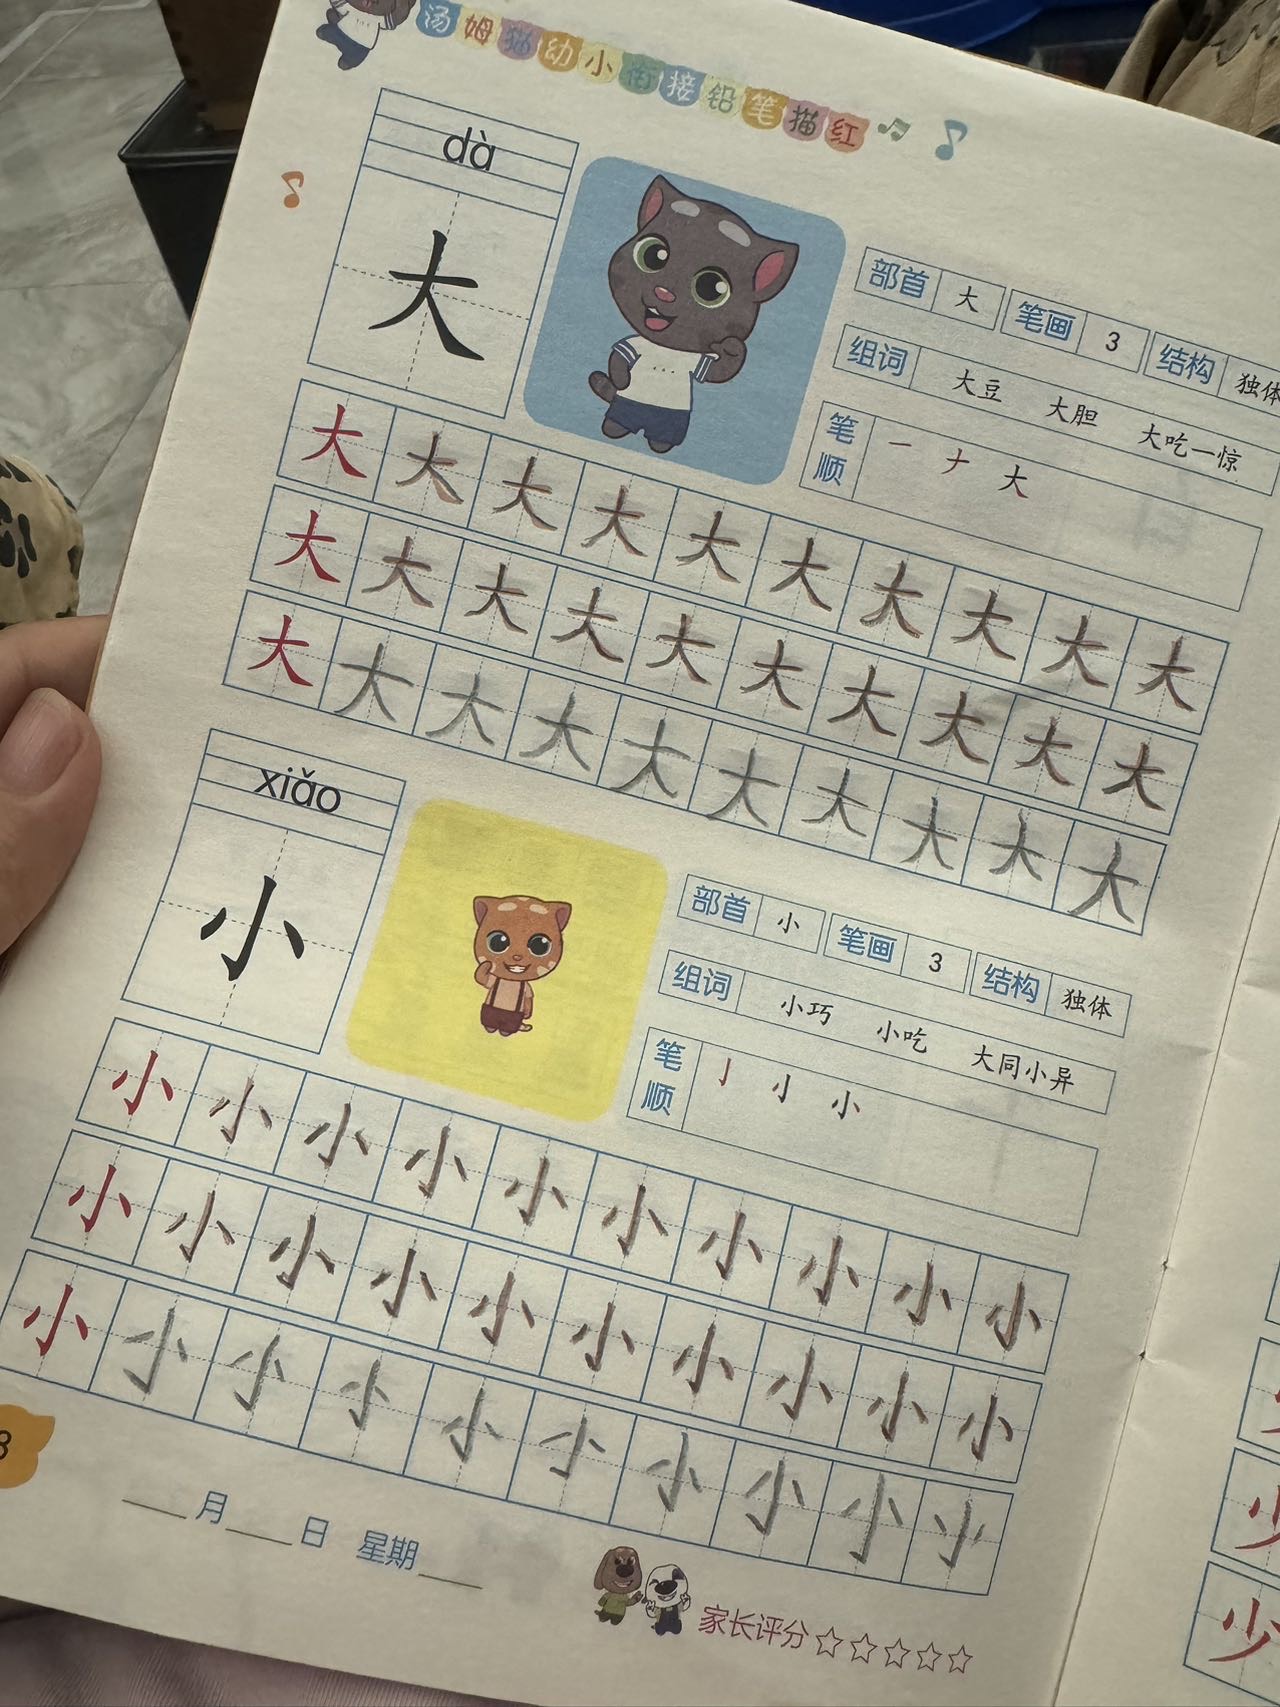 汤姆猫幼小衔接铅笔描红
dà
大
部首 大 笔画 3 结构 独体
组词 大豆 大胆 大吃一惊
笔顺 一 ナ 大
大 大 大 大 大 大 大 大 大 大
大 大 大 大 大 大 大 大 大 大
大 大 大 大 大 大 大 大 大 大
xiǎo
小
部首 小 笔画 3 结构 独体
组词 小巧 小吃 大同小异
笔顺 亅 小 小
小 小 小 小 小 小 小 小 小 小
小 小 小 小 小 小 小 小 小 小
小 小 小 小 小 小 小 小 小 小
8
月 日 星期
家长评分
少